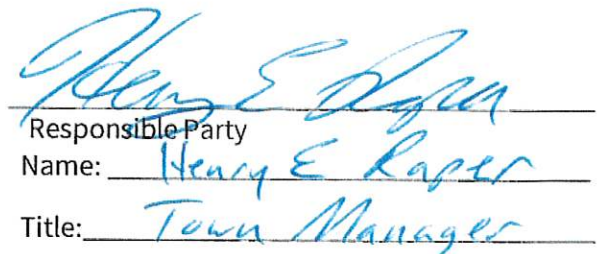 Henry E Raper
Responsible Party
Name: Henry E Raper
Title: Town Manager